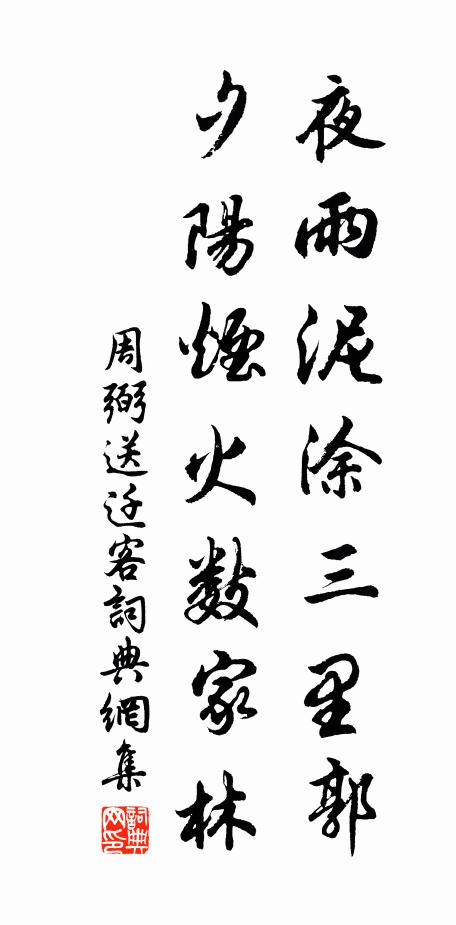 夜雨泥涂三里郭
夕陽煙火数家林
周弼送迁客詞典網集
詞典网印